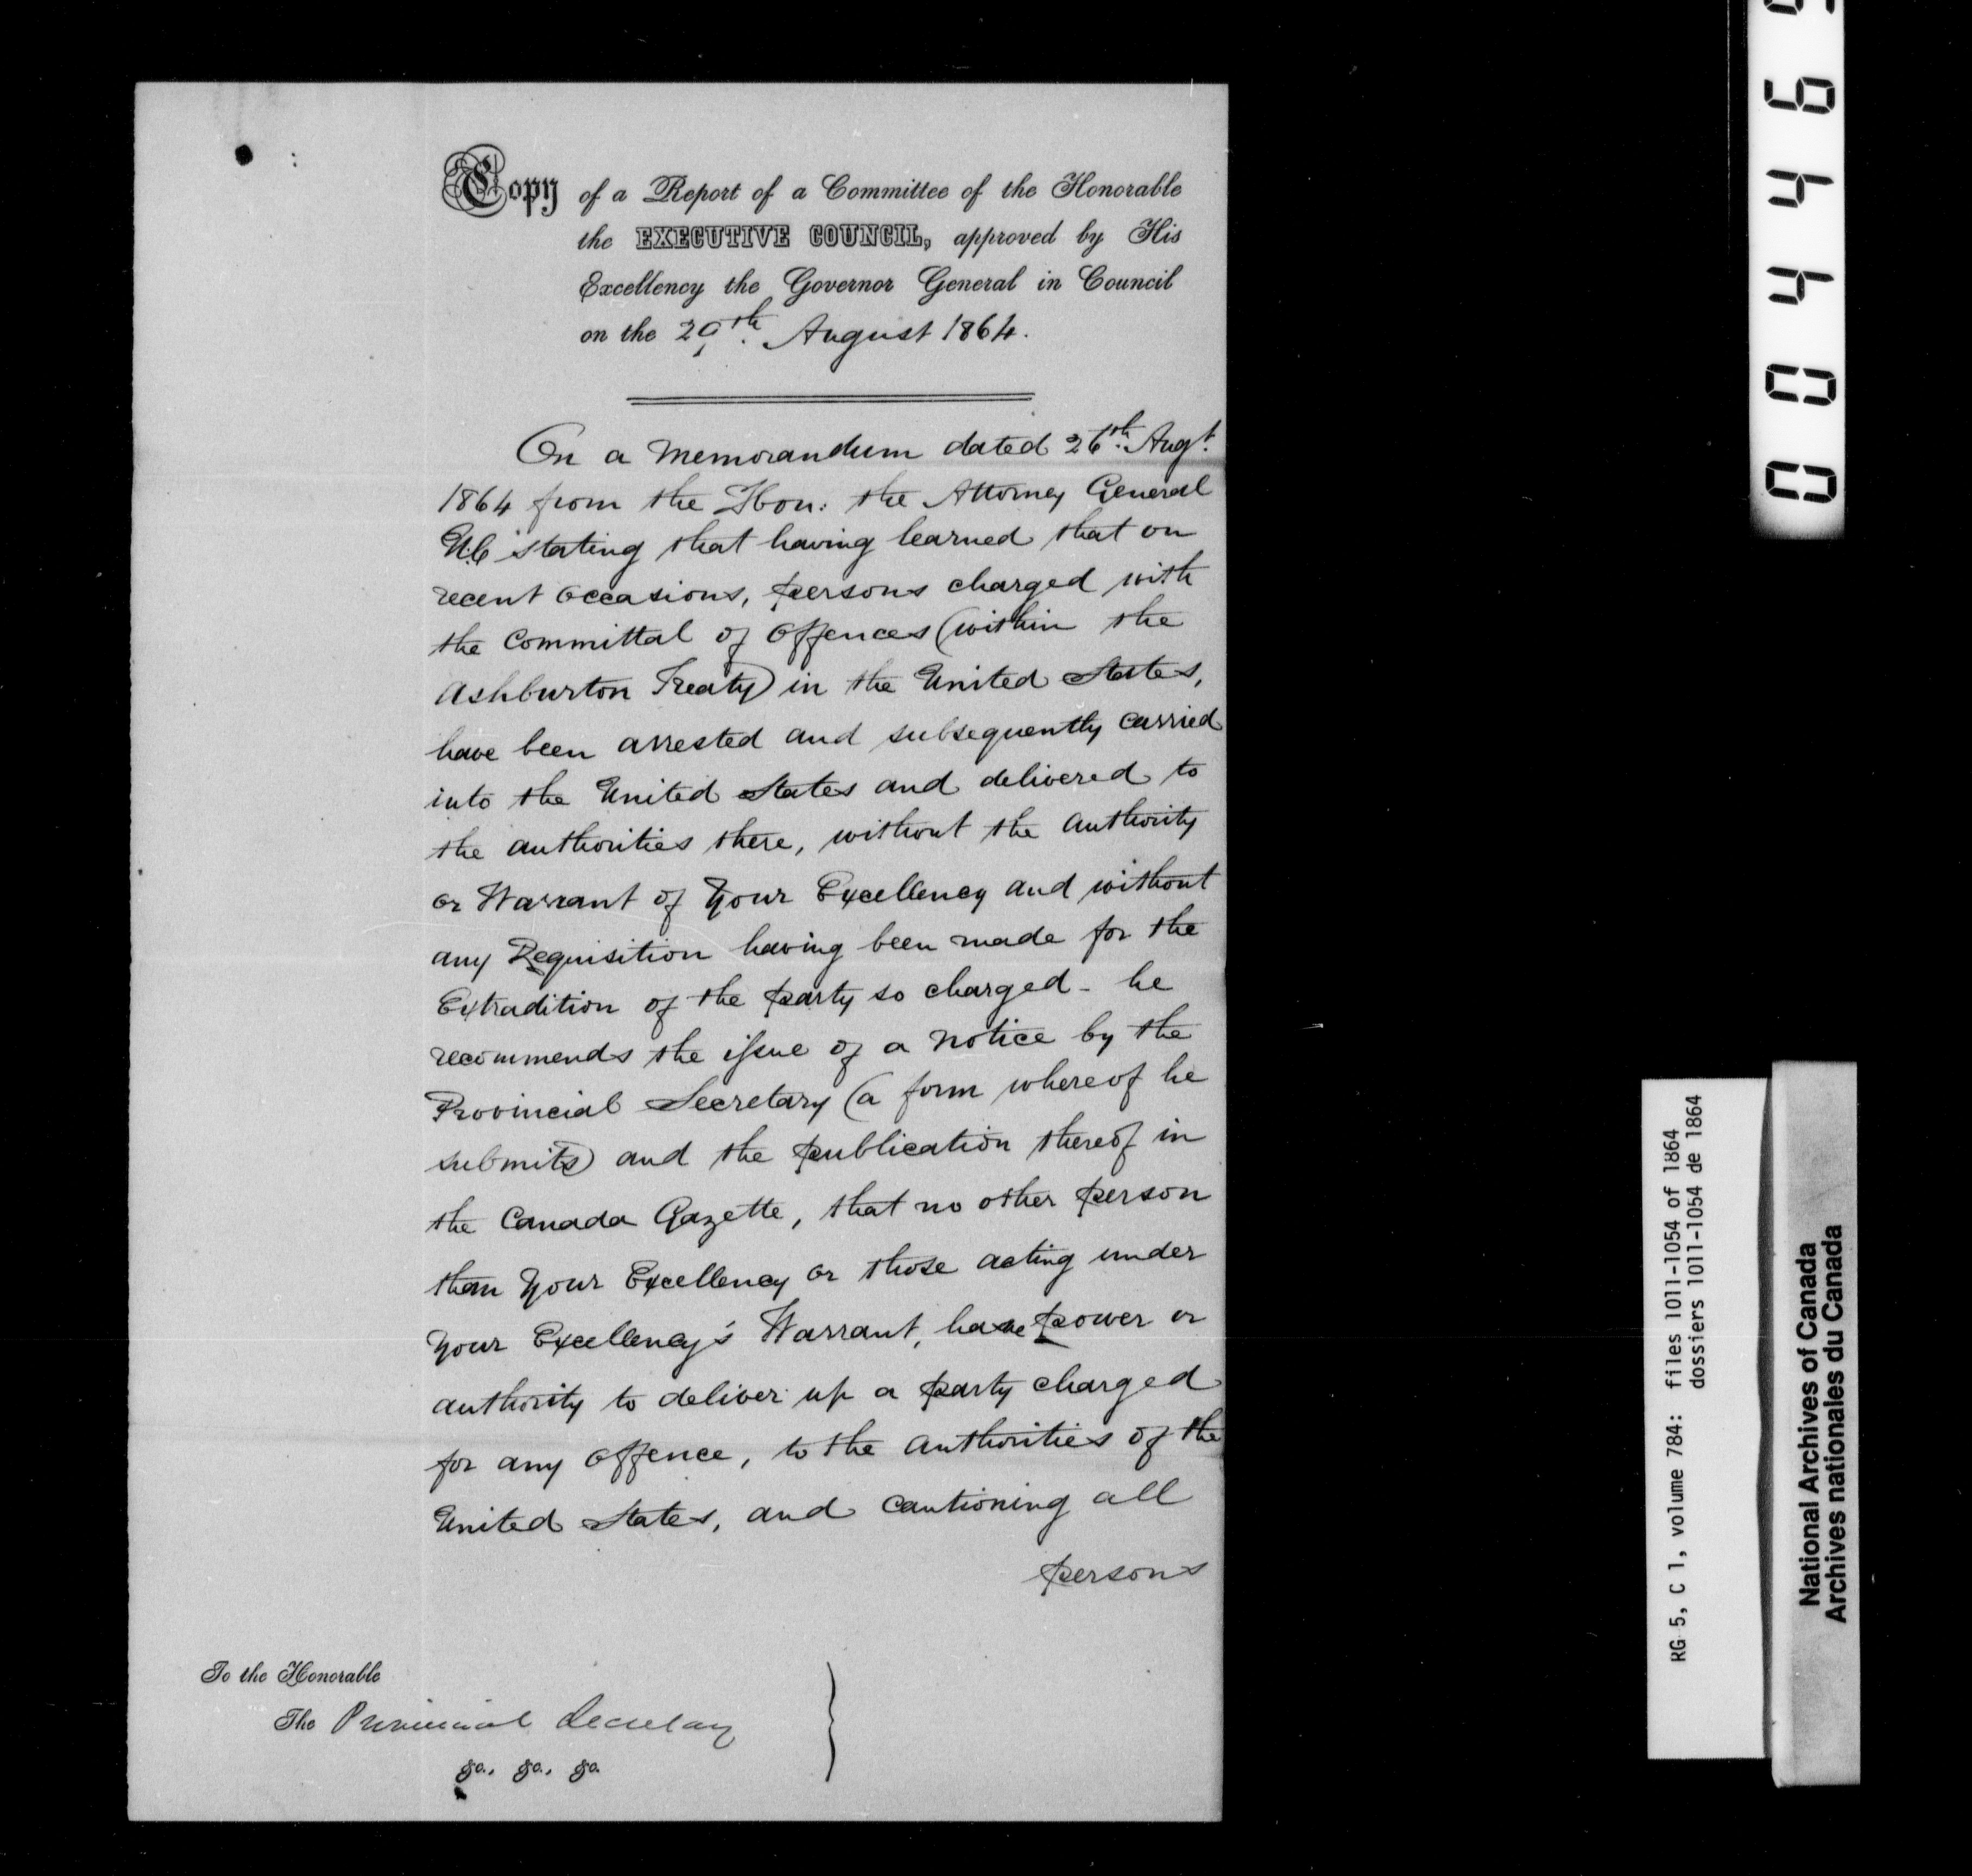 Copy of a Report of a Committee of the Honorable
the EXECUTIVE COUNCIL, approved by His
Excellency the Governor General in Council
on the 29th. August 1864.
On a Memorandum dated 26th. Augt.
1864 from the Hon: the Attorney General
U.C stating that having learned that on
recent occasions, persons charged with
the committal of offences (within the
Ashburton Treaty) in the United States,
have been arrested and subsequently carried
into the United States and delivered to
the authorities there, without the authority
or Warrant of Your Excellency and without
any Requisition having been made for the
Extradition of the party so charged - he
recommends the issue of a notice by the
Provincial Secretary (a form whereof he
submits) and the publication thereof in
the Canada Gazette, that no other person
than Your Excellency or those acting under
Your Excellency's Warrant, have power or
authority to deliver up a party charged
for any offence, to the authorities of the
United States, and cautioning all
persons
To the Honorable
The Provincial Secretary
&c., &c., &c.
0 0 4 4 6
RG 5, C 1, volume 784: files 1011-1054 of 1864
dossiers 1011-1054 de 1864
National Archives of Canada
Archives nationales du Canada